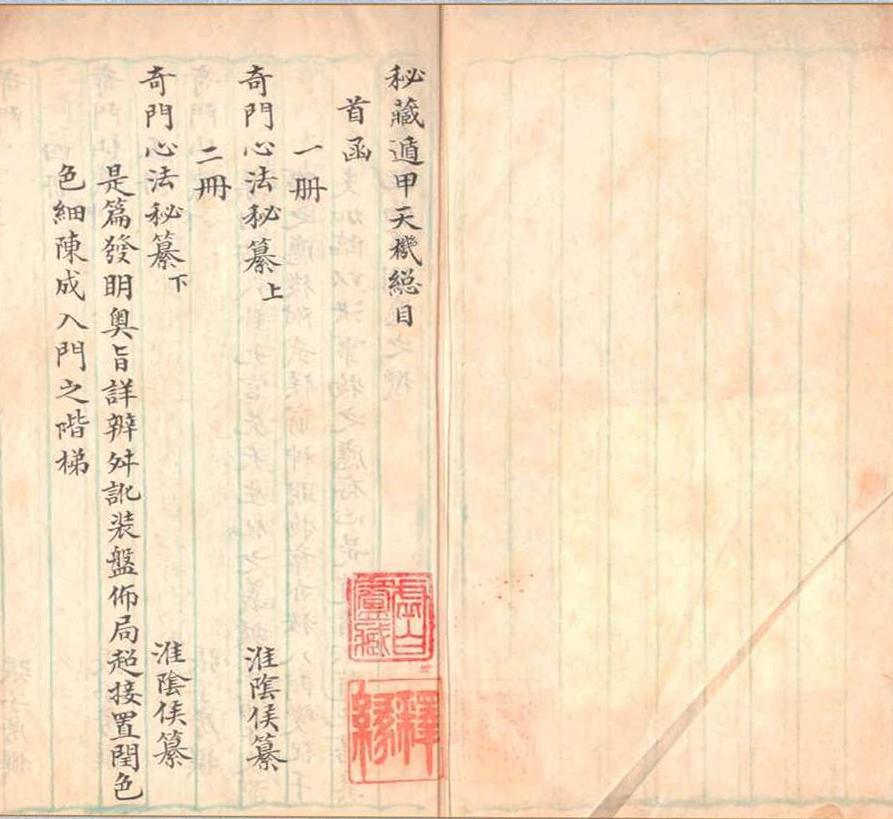 秘藏遁甲天機総目
首函
一冊
奇門心法秘纂上 淮陰侯纂
二冊
奇門心法秘纂下 淮陰侯纂
是篇發明奧旨詳辨舛訛装盤佈局超接置閏色
色細陳成入門之階梯